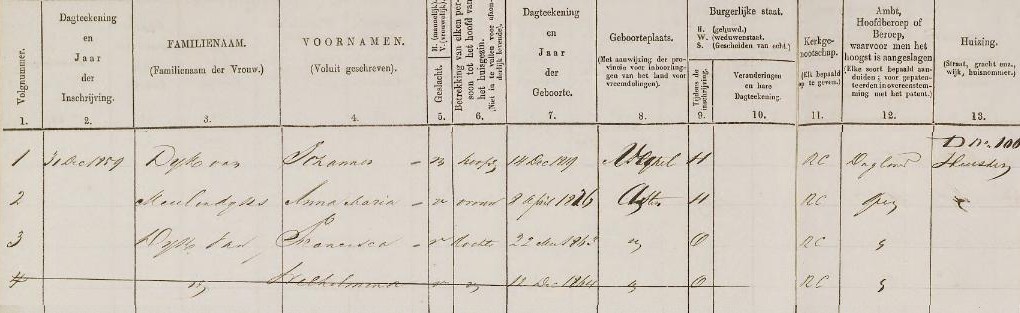 Volgnummer.
Dagteekening
en
Jaar
der
Inschrijving.
FAMILIENAAM.
(Familienaam der Vrouw.)
VOORNAMEN.
(Voluit geschreven).
Geslacht. M. (mannelijk). V. (vrouwelijk).
Betrekking van elken persoon tot het hoofd van het huisgezin.
Dagteekening
en
Jaar
der
Geboorte.
Geboorteplaats.
(Met aanwijzing der provincie voor inboorlingen van het land voor vreemdelingen).
Burgerlijke staat.
H. (gehuwd.)
W. (weduwenstaat.
S. (Gescheiden van echt.)
Tijdens de inschrijving.
Veranderingen
en hare
Dagteekening.
Kerkgenootschap.
(Elk bepaald op te geven.)
Ambt,
Hoofdberoep of
Beroep,
waarvoor men het
hoogst is aangeslagen
(Elke soort bepaald aanduiden; voor gepatenteerden in overeenstemming met het patent.)
Huizing.
(Straat, gracht enz., wijk, huisnummer.)
1. 2. 3. 4. 5. 6. 7. 8. 9. 10. 11. 12. 13.
D No. 100
1 31 Dec 1859 Dijk van Johannes m hoofd 14 Dec 1819 H RC Heusden
2 Anna Maria v vrouw 8 April 1826 Asten H RC
3 Dijk Van Francisca v 22 O RC
4 Wilhelmina v 11 Dec 1864 O RC